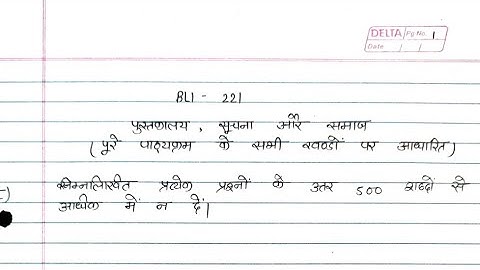 DELTA Pg No. 1
Date / /
BLI - 221
पुस्तकालय, सूचना और समाज
(पूरे पाठ्यक्रम के सभी खण्डों पर आधारित)
निम्नलिखित प्रत्येक प्रश्नों के उतर 500 शब्दों से
अधिक में न दें।